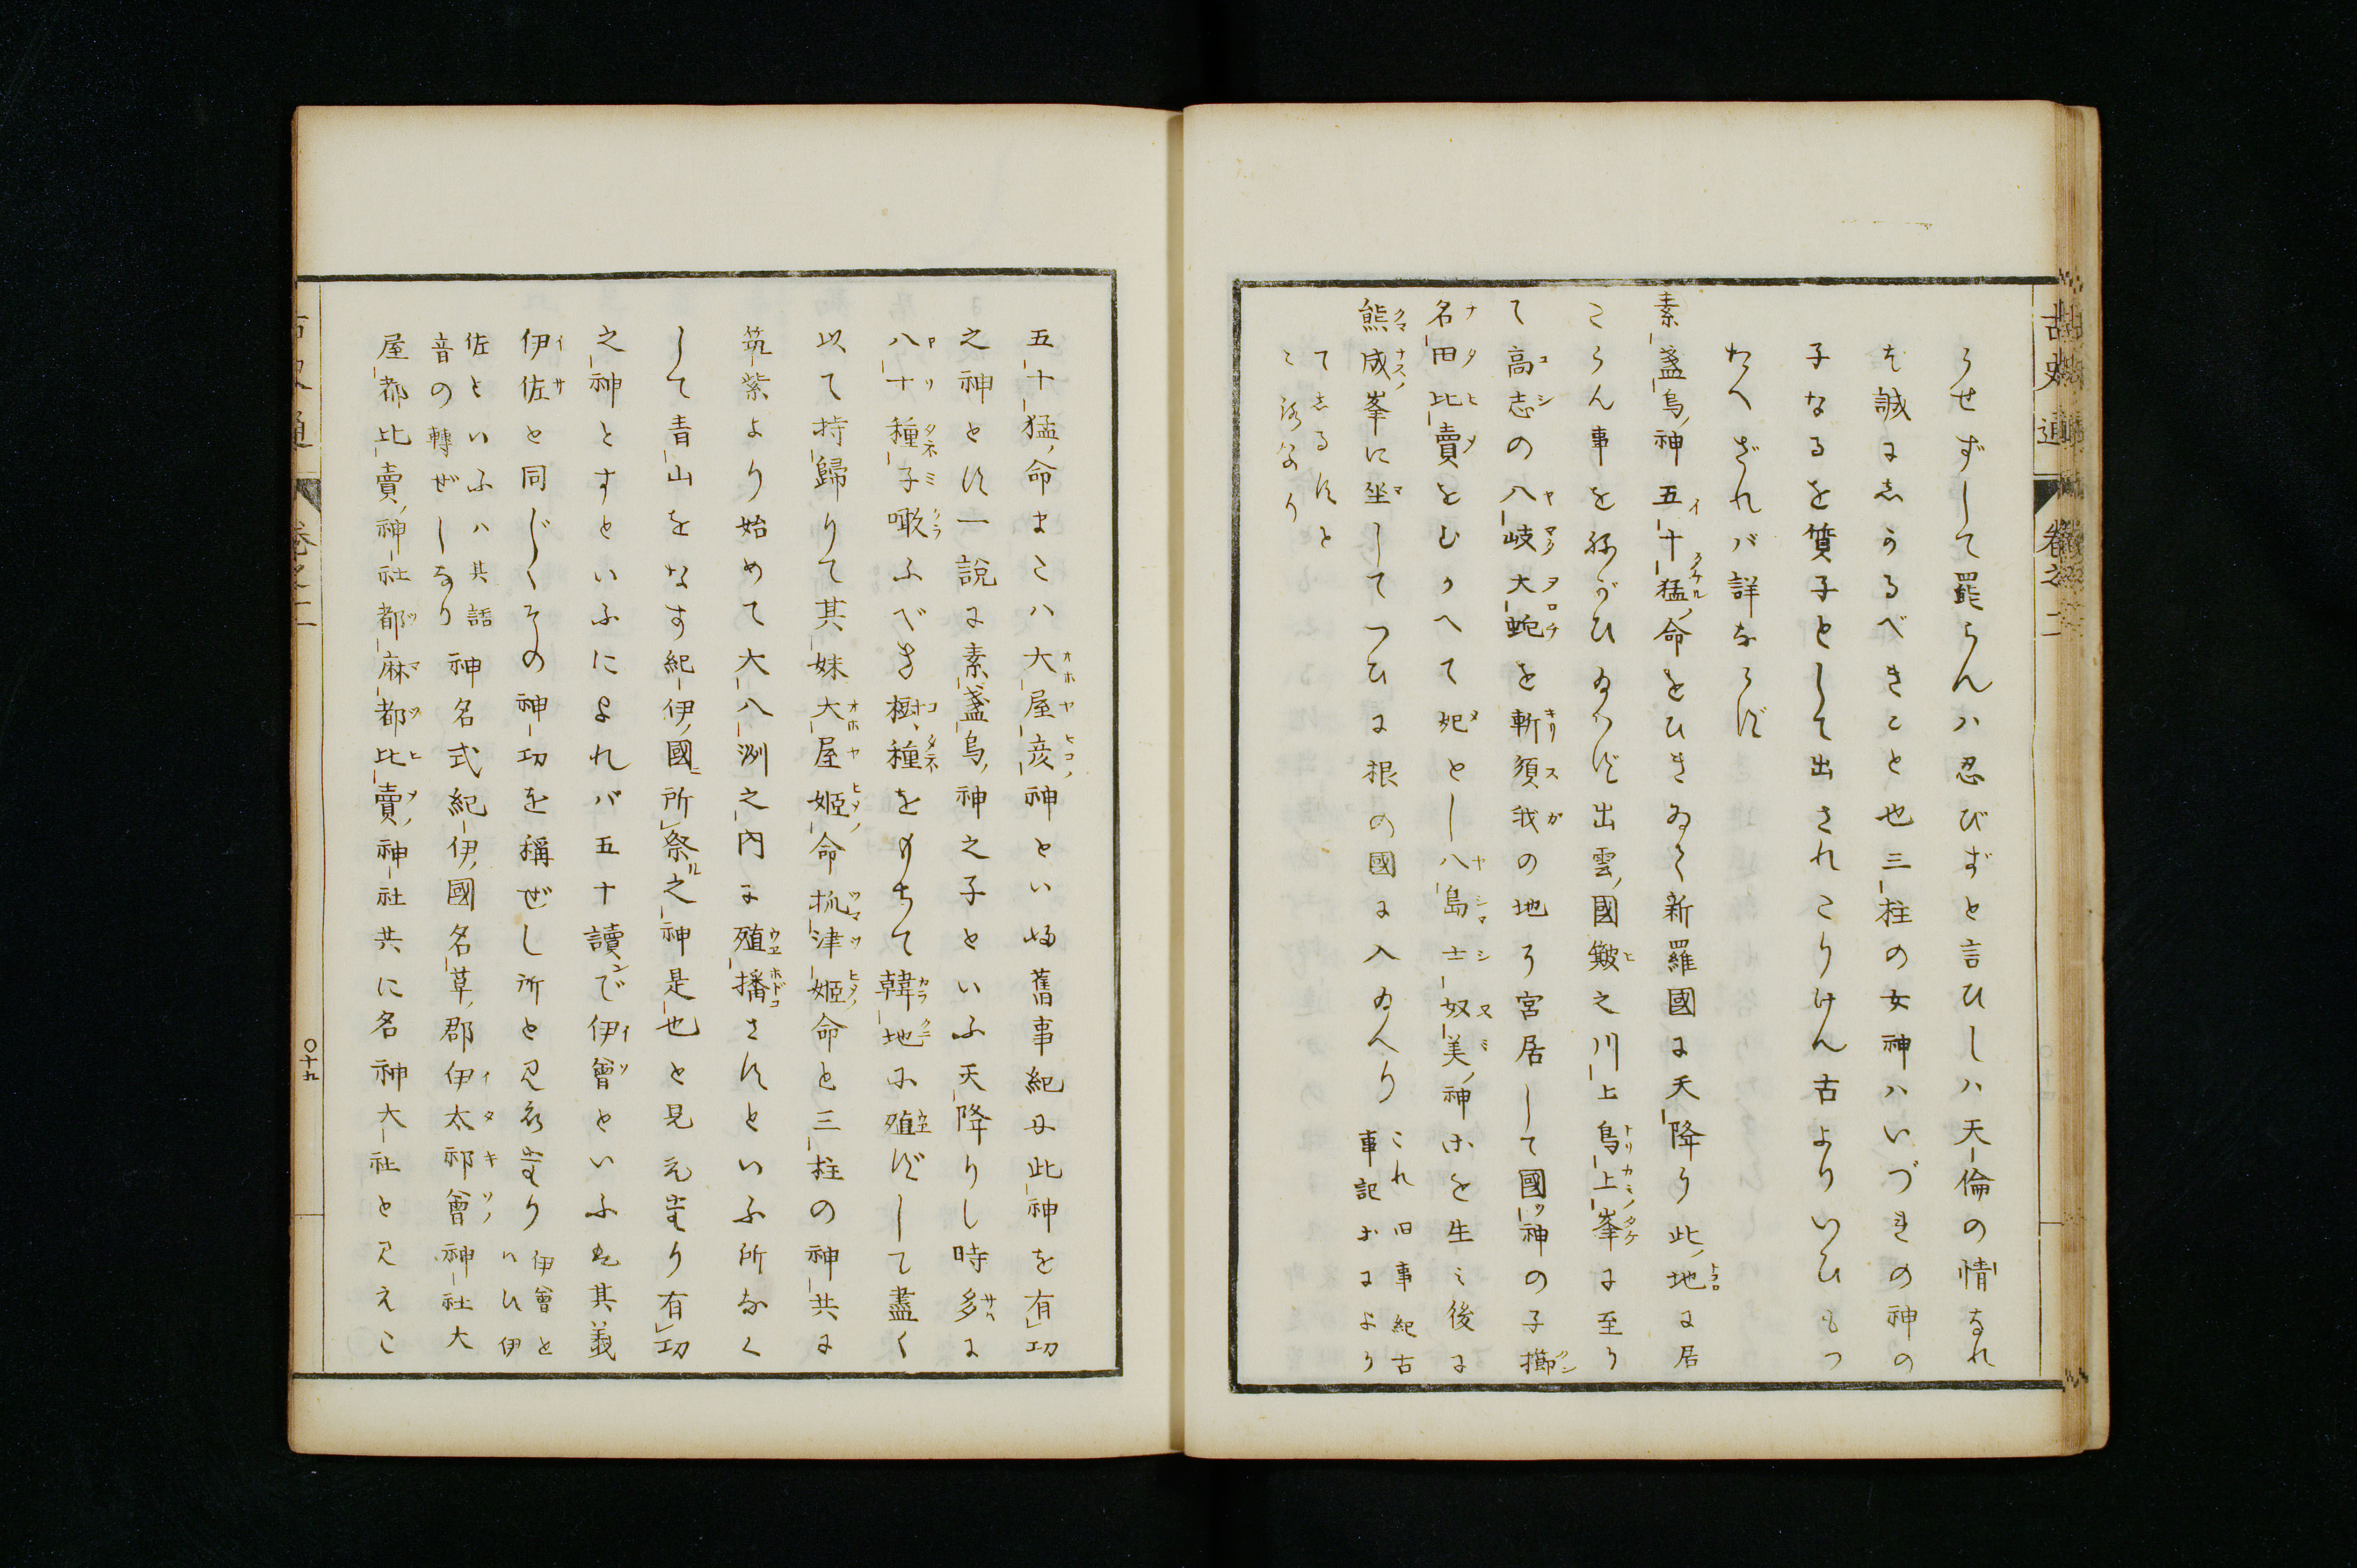 古史通 卷之二
うせずして罷らんハ忍びずと言ひしハ天倫の情なれ
ば誠にあるべきこと也三柱の女神ハいづれの神の
子なるを質子として出されこりけん古よりいひつ
たへざれバ詳ならず
素盞烏神五十猛命をひきゐて新羅國に天降り此地に居
こらん事を好がひ給はず出雲國簸之川上鳥上峯に至り
て高志の八岐大蛇を斬須我の地に宮居して國神の子櫛
名田比賣をむかへて妃とし八島士奴美神等を生み後に
熊成峯に坐してつひに根の國に入ゐへり これ旧事紀古
事記等により
てしるすと
ころなり
五十猛命またハ大屋彦神といふ舊事紀に此神を有功
之神とす一說に素盞烏神之子といふ天降りし時多に
八十種子噉ふべき樹種をもちて韓地に殖ずして盡く
以て持歸りて其妹大屋姫命抓津姫命と三柱の神共に
筑紫より始めて大八洲之內に殖播さずといふ所なく
して靑山をなす紀伊國所祭之神是也と見えたり有功
之神とすといふによれバ五十讀で伊曾といふ其義
伊佐と同じくその神功を稱ぜし所と見えたり 伊曾と
いひ伊
佐といふハ其語
音の轉ぜしなり 神名式紀伊國名草郡伊太祁曾神社大
屋都比賣神社都麻都比賣神社共に名神大社と見えた
古史通 卷之二 〇十九